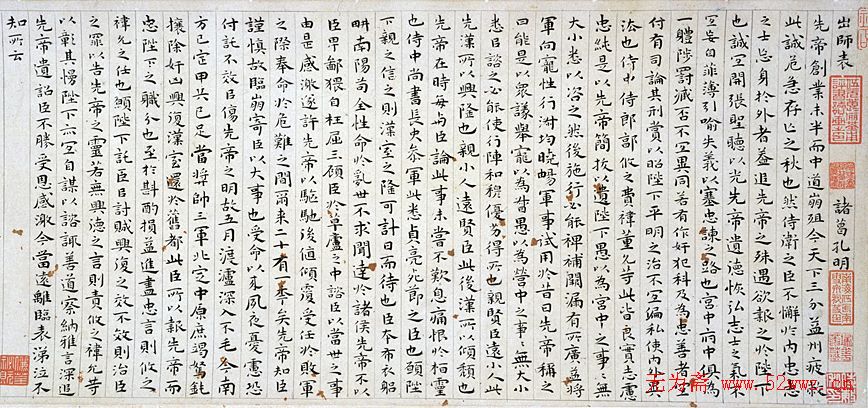 出師表
諸葛孔明
先帝創業未半而中道崩殂今天下三分益州疲敝
此誠危急存亡之秋也然侍衛之臣不懈於內忠志
之士忘身於外者蓋追先帝之殊遇欲報之於陛下
也誠宜開張聖聽以光先帝遺德恢弘志士之氣不
宜妄自菲薄引喻失義以塞忠諫之路也宮中府中俱為
一體陟罰臧否不宜異同若有作奸犯科及為忠善者宜
付有司論其刑賞以昭陛下平明之治不宜偏私使內外異
法也侍中侍郎郭攸之費禕董允等此皆良實志慮
忠純是以先帝簡拔以遺陛下愚以為宮中之事事無
大小悉以咨之然後施行必能裨補闕漏有所廣益將
軍向寵性行淑均曉暢軍事試用於昔日先帝稱之
曰能是以眾議舉寵以為督愚以為營中之事事無大小
悉以諮之必能使行陣和穆優劣得所也親賢臣遠小人此
先漢所以興隆也親小人遠賢臣此後漢所以傾頹也
先帝在時每與臣論此事未嘗不歎息痛恨於桓靈
也侍中尚書長史參軍此悉貞亮死節之臣也願陛
下親之信之則漢室之隆可計日而待也臣本布衣躬
耕南陽苟全性命於亂世不求聞達於諸侯先帝不以
臣卑鄙猥自枉屈三顧臣於草廬之中諮臣以當世之事
由是感激遂許先帝以驅馳後值傾覆受任於敗軍
之際奉命於危難之間爾來二十有一年矣先帝知臣
謹慎故臨崩寄臣以大事也受命以來夙夜憂慮恐
付託不效以傷先帝之明故五月渡瀘深入不毛今南
方已定甲兵已足當獎帥三軍北定中原庶竭駑鈍
攘除奸凶興復漢室還於舊都此臣所以報先帝而
忠陛下之職分也至於斟酌損益進盡忠言則攸之
禕允之任也願陛下託臣以討賊興復之效不效則治臣
之罪以告先帝之靈若無興德之言則責攸之禕允等
以彰其慢陛下亦宜自謀以諮諏善道察納雅言深追
先帝遺詔臣不勝受恩感激今當遠離臨表涕泣不
知所云
无为斋 www.52wwz.com